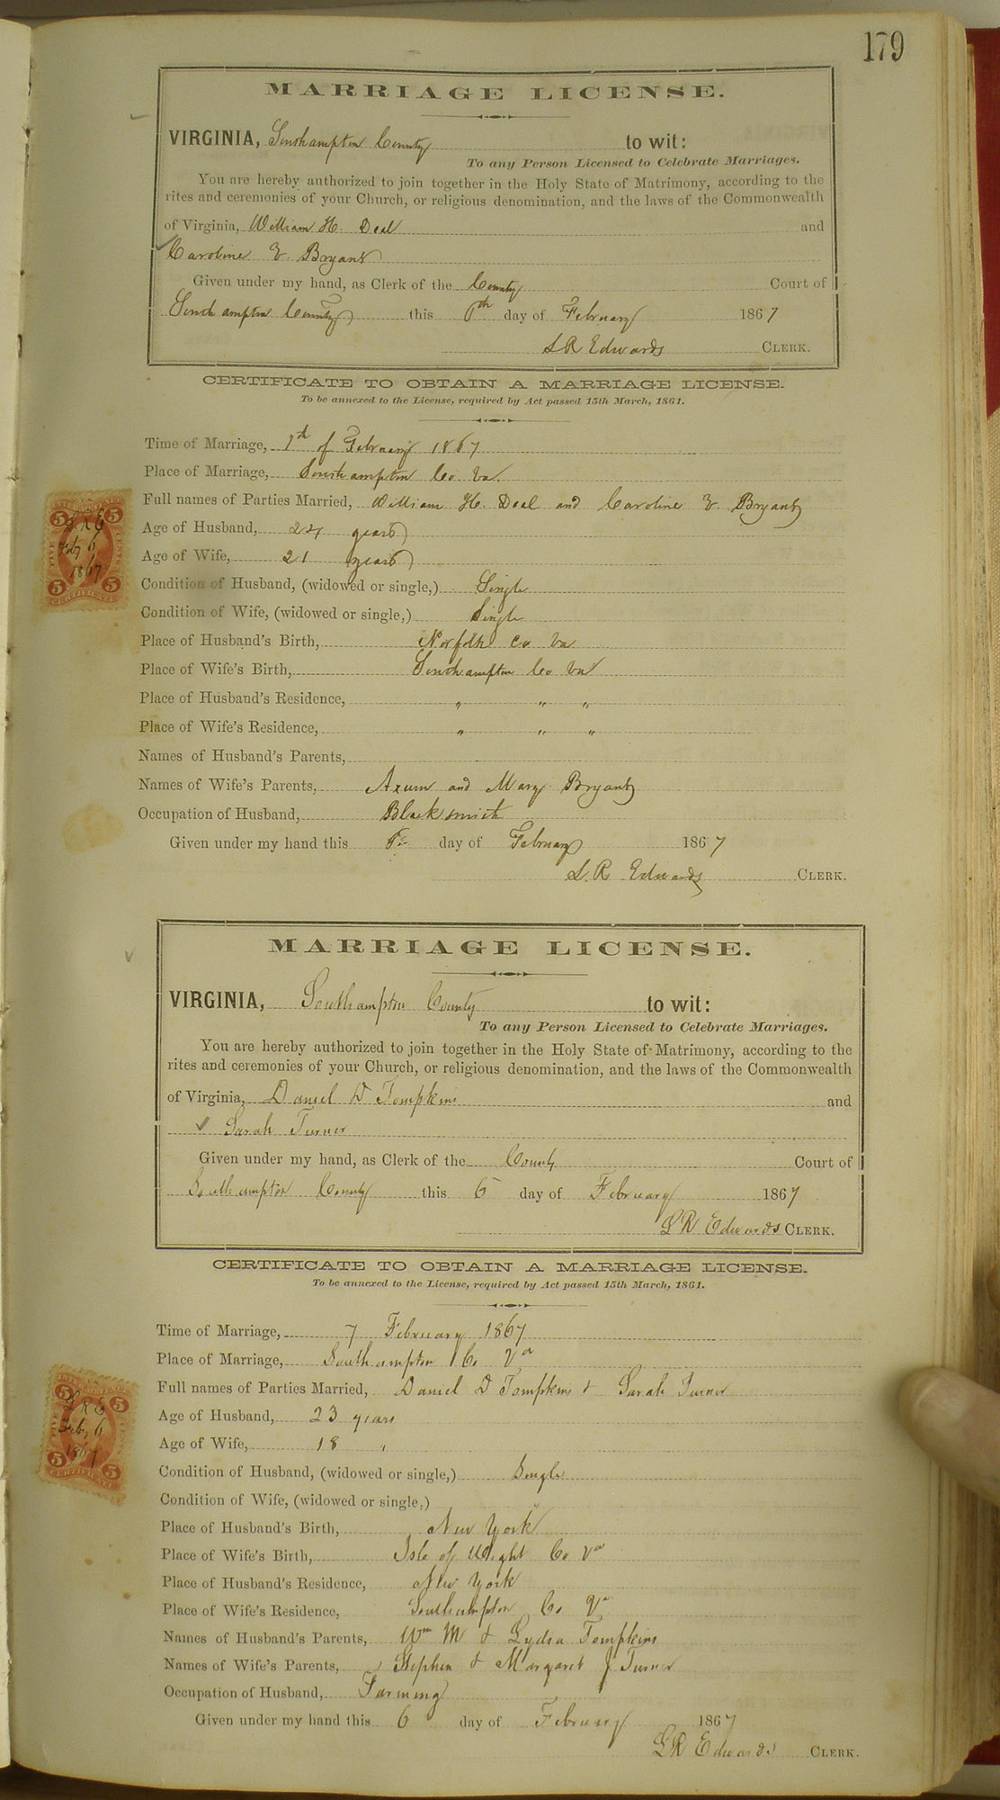 179
MARRIAGE LICENSE.
VIRGINIA, Southampton County to wit:
To any Person Licensed to Celebrate Marriages.
You are hereby authorized to join together in the Holy State of Matrimony, according to the
rites and ceremonies of your Church, or religious denomination, and the laws of the Commonwealth
of Virginia, William H. Deal and
Caroline E. Bryant
Given under my hand, as Clerk of the County Court of
Southampton County this 6th day of February 1867
L R Edwards CLERK.
CERTIFICATE TO OBTAIN A MARRIAGE LICENSE.
To be annexed to the License, required by Act passed 15th March, 1861.
Time of Marriage, 7th of February 1867
Place of Marriage, Southampton Co Va.
Full names of Parties Married, William H. Deal and Caroline E. Bryant
Age of Husband, 24 years
Age of Wife, 21 years
Condition of Husband, (widowed or single,) Single
Condition of Wife, (widowed or single,) Single
Place of Husband's Birth, Norfolk Co Va
Place of Wife's Birth, Southampton Co Va
Place of Husband's Residence, " " "
Place of Wife's Residence, " " "
Names of Husband's Parents,
Names of Wife's Parents, and Mary Bryant
Occupation of Husband, Blacksmith
Given under my hand this 6th day of February 1867
L. R Edwards CLERK.
5 5
L R E
Feby 6
1867
5 5
CERTIFICATE
MARRIAGE LICENSE.
VIRGINIA, Southampton County to wit:
To any Person Licensed to Celebrate Marriages.
You are hereby authorized to join together in the Holy State of Matrimony, according to the
rites and ceremonies of your Church, or religious denomination, and the laws of the Commonwealth
of Virginia, Daniel D Tompkins and
Sarah Turner
Given under my hand, as Clerk of the County Court of
Southampton County this 6 day of February 1867
L R Edwards CLERK.
CERTIFICATE TO OBTAIN A MARRIAGE LICENSE.
To be annexed to the License, required by Act passed 15th March, 1861.
Time of Marriage, 7 February 1867
Place of Marriage, Southampton Co Va
Full names of Parties Married, Daniel D Tompkins & Sarah Turner
Age of Husband, 23 years
Age of Wife, 18 "
Condition of Husband, (widowed or single,) Single
Condition of Wife, (widowed or single,) "
Place of Husband's Birth, New York
Place of Wife's Birth, Isle of Wight Co Va
Place of Husband's Residence, New York
Place of Wife's Residence, Southampton Co Va
Names of Husband's Parents, Wm M & Lydia Tompkins
Names of Wife's Parents, Stephen & Margaret J Turner
Occupation of Husband, Farming
Given under my hand this 6 day of February 1867
L R Edwards CLERK.
5 5
L R E
Feb, 6
1867
5 5
CERTIFICATE